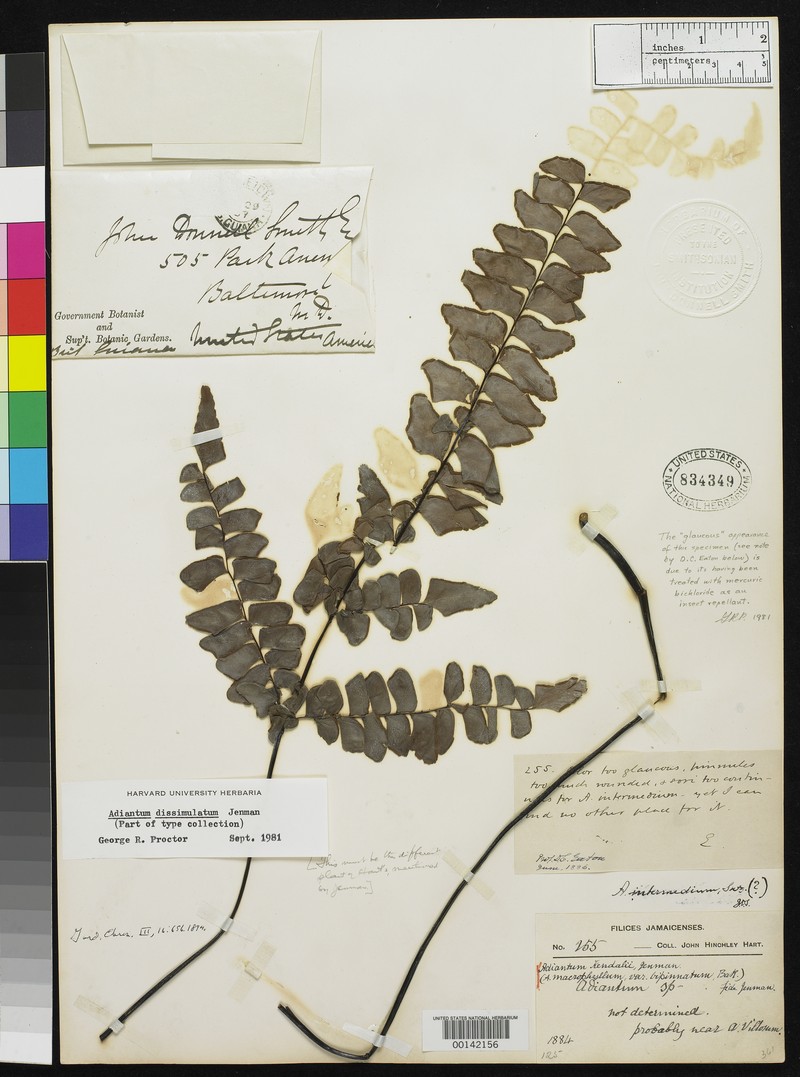 inches 1 2
centimeters 1 2 3 4 5
John Donnell Smith
505 Park Avenue
Baltimore
M.D.
United States America
Government Botanist
and
Sup't. Botanic Gardens.
UNITED STATES
834349
NATIONAL HERBARIUM
The "glaucous" appearance
of this specimen (see note
by D.C. Eaton below) is
due to its having been
treated with mercuric
bichloride as an
insect repellant.
G.R.P. 1981
255. too glaucous, pinnules
too much rounded, sori too contin-
for A. intermedium - yet I can
find no other place for it.
E
Prof. D.C. Eaton
June, 1886.
HARVARD UNIVERSITY HERBARIA
Adiantum dissimulatum Jenman
(Part of type collection)
George R. Proctor Sept. 1981
[This must be the different
plant
by Jenman]
Gard. Chron. III, 16: 656. 1894.
A. intermedium, Sw. (?)
FILICES JAMAICENSES.
No. 255 COLL. JOHN HINCHLEY HART.
Adiantum Kendalii, Jenman.
(A. macrophyllum, var. bipinnatum, Bak.)
Adiantum sp- fide Jenman.
not determined.
probably near A. Villosum.
1884
UNITED STATES NATIONAL HERBARIUM
00142156